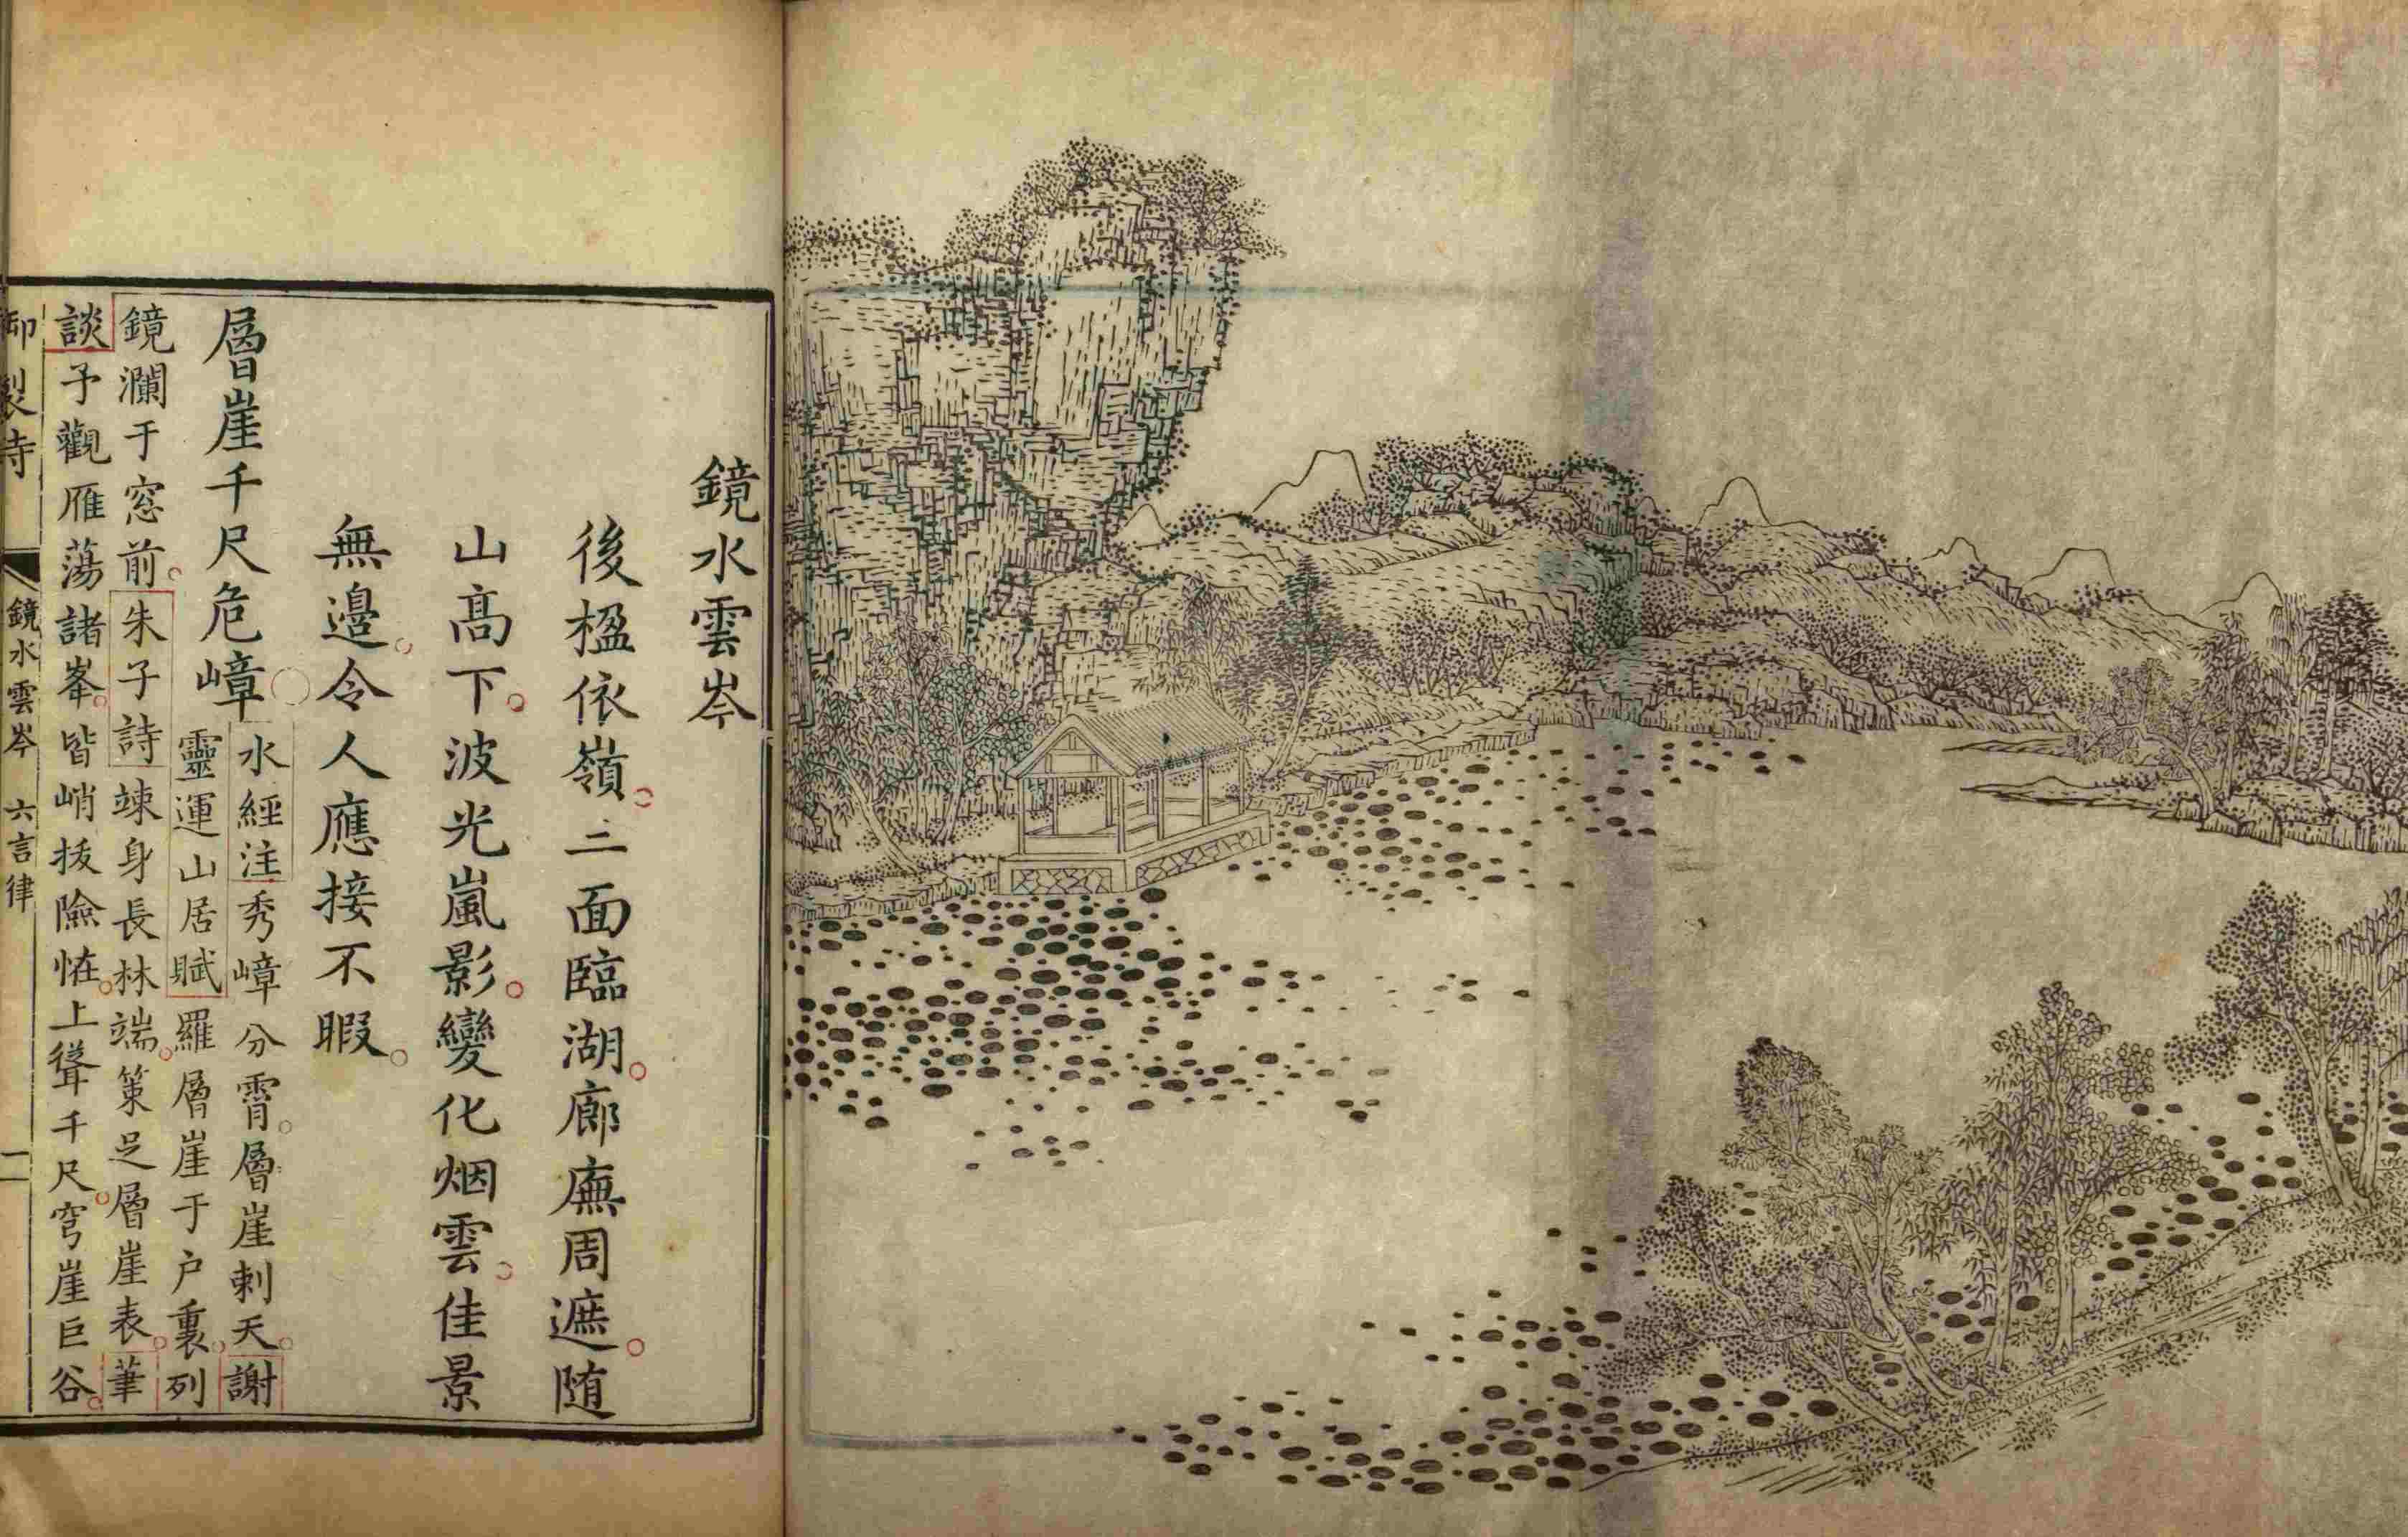 鏡水雲岑
後楹依嶺。三面臨湖。廊廡周遮。随
山髙下。波光嵐影。變化烟雲。佳景
無邊。令人應接不暇。
層崖千尺危嶂。
水經注秀嶂分霄。層崖刺天。謝
靈運山居賦羅層崖于户裏。列
鏡瀾于窓前。朱子詩竦身長林端。策足層崖表。筆
談予觀雁蕩諸峯。皆峭拔險恠。上聳千尺。穹崖巨谷。
御製詩 鏡水雲岑 六言律 二